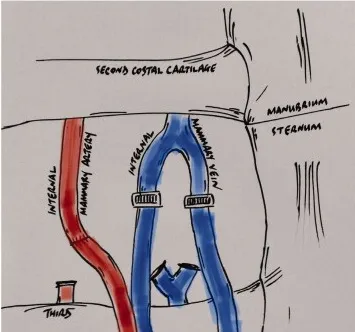 SECOND COSTAL CARTILAGE
MANUBRIUM
STERNUM
INTERNAL
MAMMARY ARTERY
INTERNAL
MAMMARY VEIN
THIRD